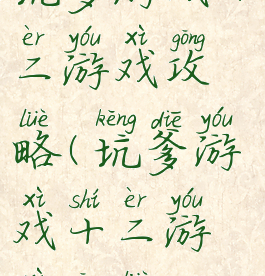 èr yóu xì gōng
二游戏攻
lüè kēng diē yóu
略(坑爹游
xì shí èr yóu
戏十二游